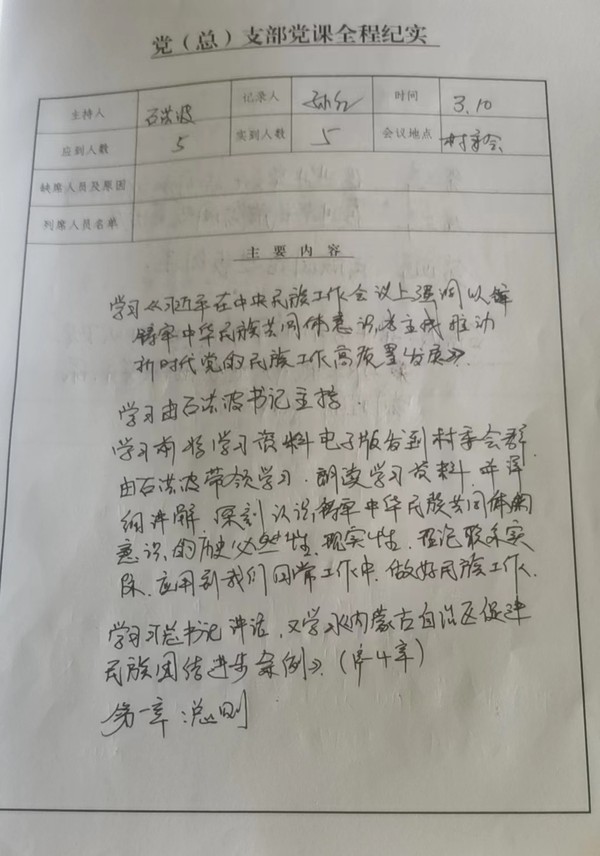 党（总）支部党课全程纪实
主持人 石洪波 记录人 孙红 时间 3.10
应到人数 5 实到人数 5 会议地点 村委会
缺席人员及原因
列席人员名单
主要内容
学习《习近平在中央民族工作会议上强调以铸
铸牢中华民族共同体意识为主线推动
新时代党的民族工作高质量发展》.
学习由石洪波书记主持.
学习前将学习资料电子版发到村委会群
由石洪波带领学习.朗读学习资料,并详
细讲解.深刻认识铸牢中华民族共同体
意识的历史必然性、现实性.理论联系实
际.应用到我们日常工作中.做好民族工作.
学习习总书记讲话,又学习《内蒙古自治区促进
民族团结进步条例》.(4章)
第一章:总则